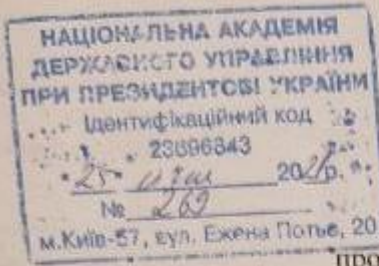 НАЦІОНАЛЬНА АКАДЕМІЯ
ДЕРЖАВНОГО УПРАВЛІННЯ
ПРИ ПРЕЗИДЕНТОВІ УКРАЇНИ
Ідентифікаційний код
23696843
25 20 р.
№ 269
м.Київ-57, вул. Ежена Потье, 20
про